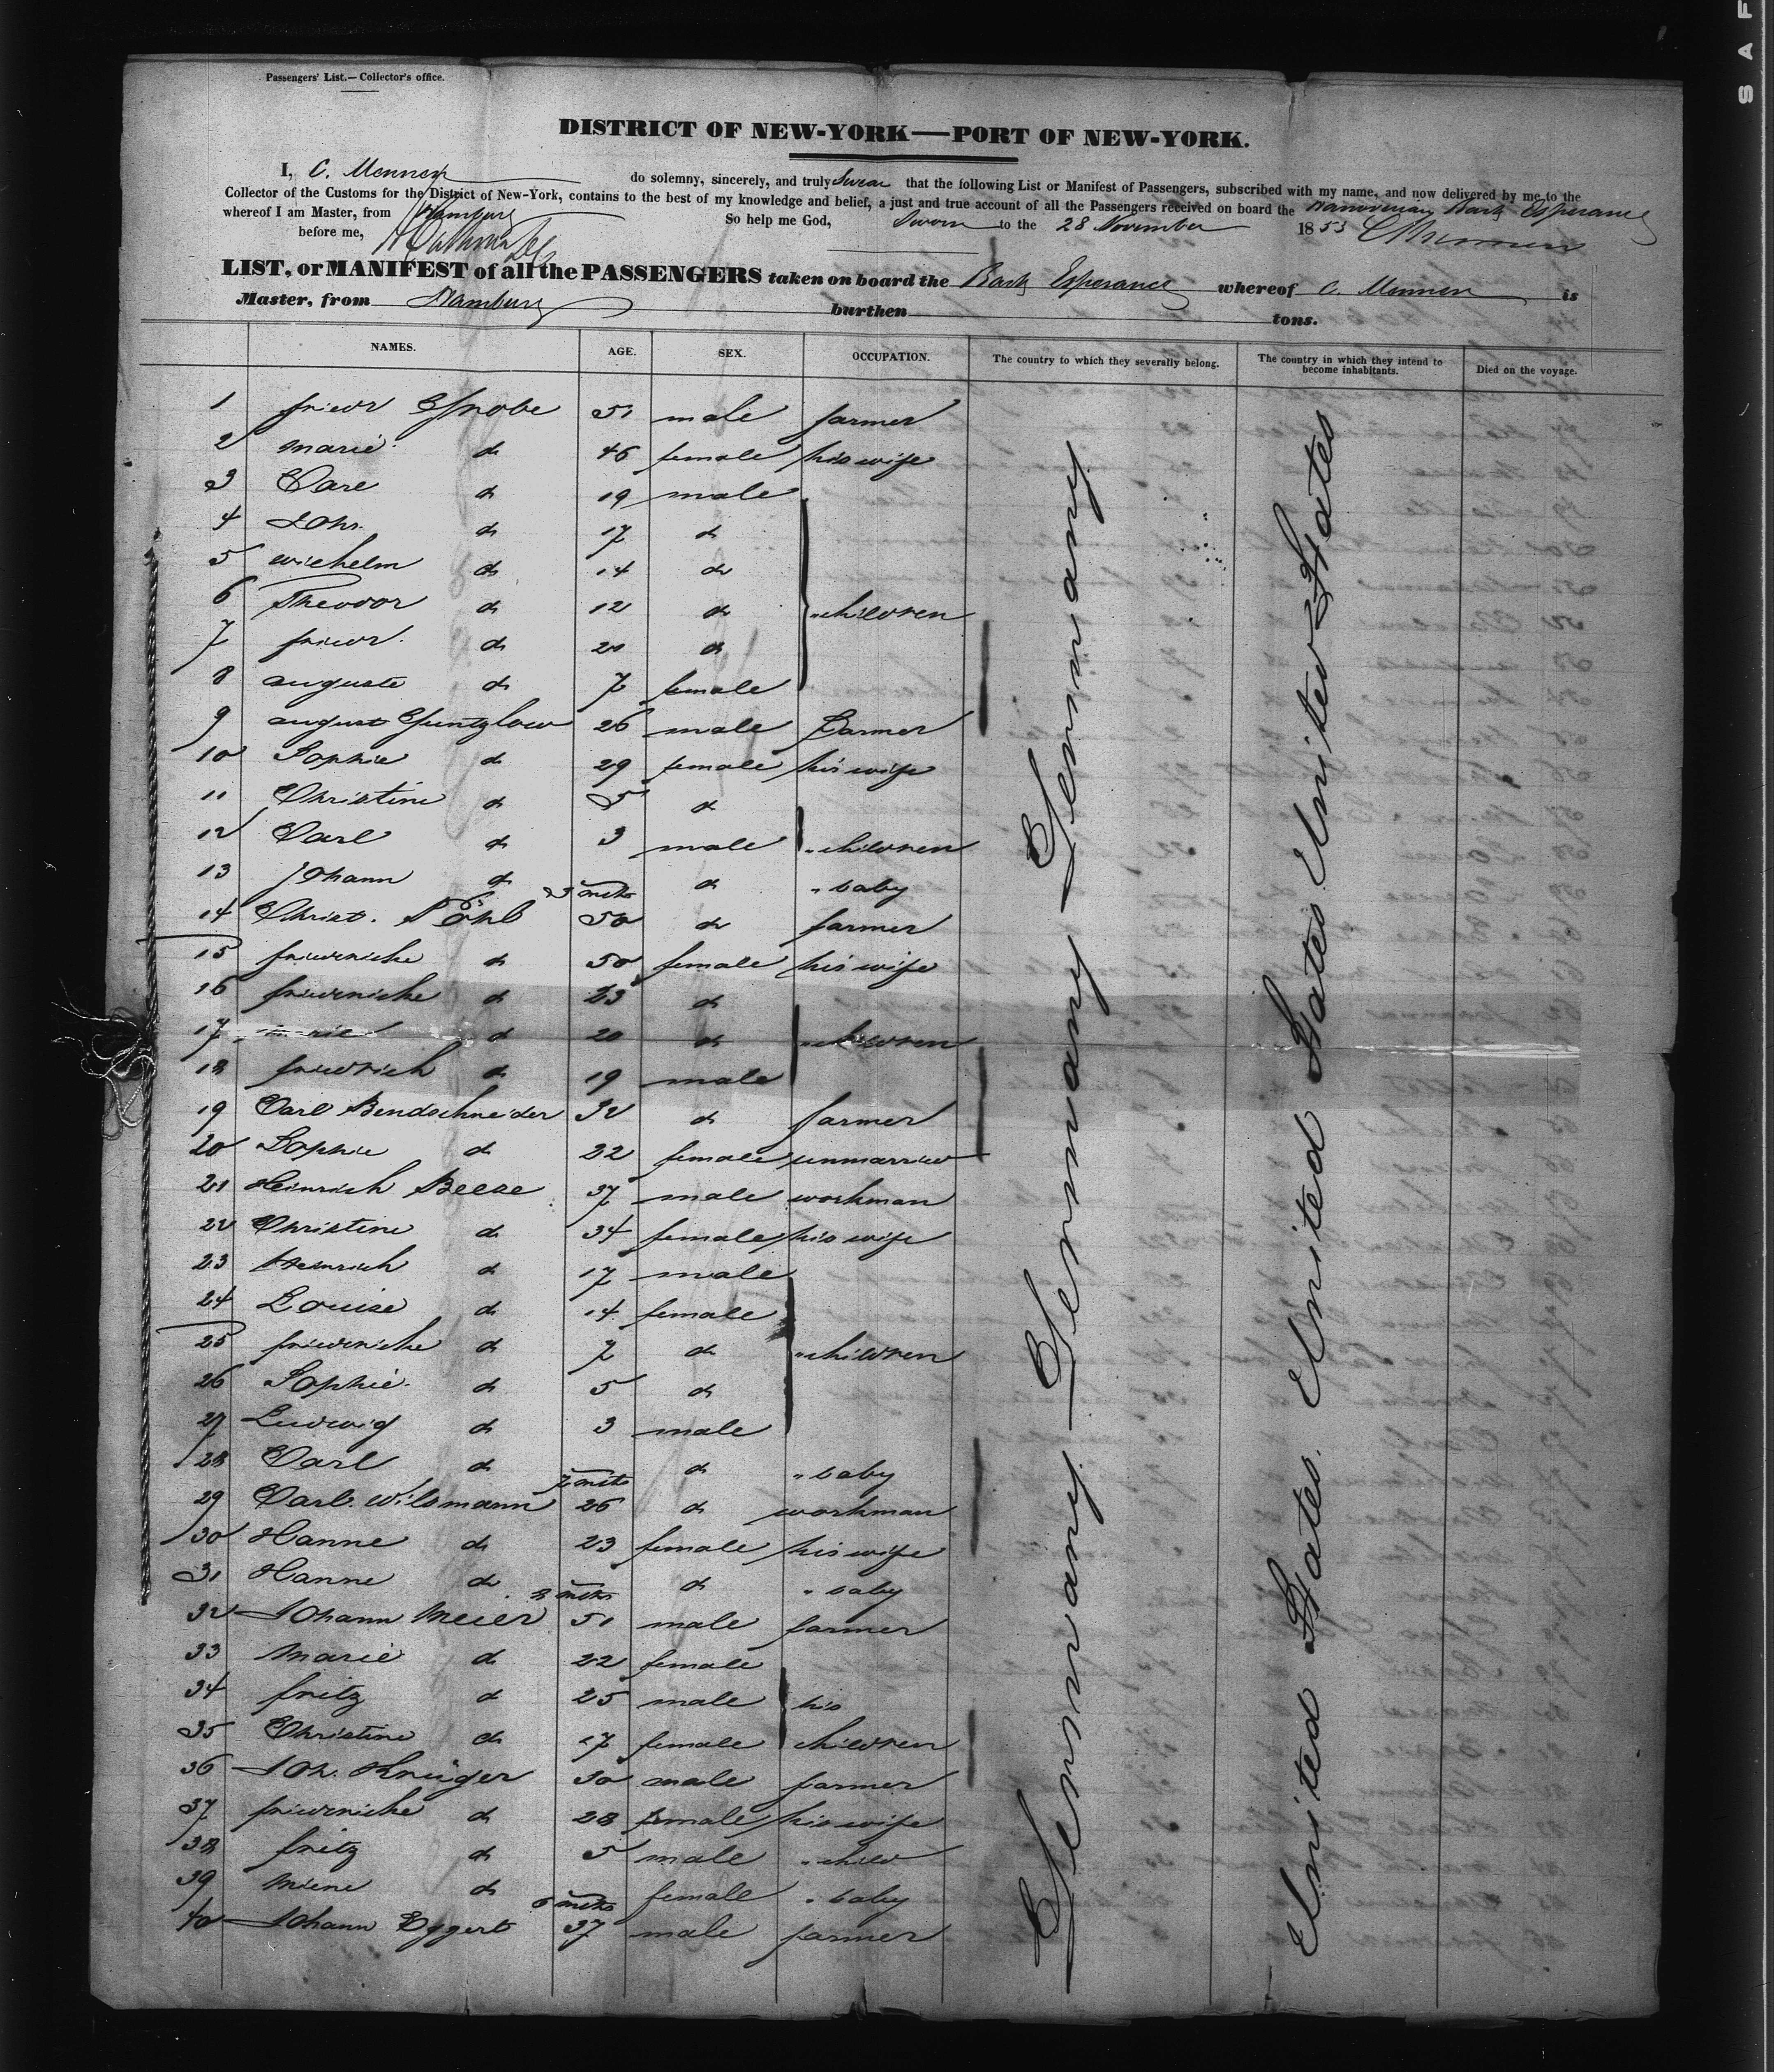 Passengers' List.—Collector's office.
DISTRICT OF NEW-YORK—PORT OF NEW-YORK.
I, C. Menner do solemny, sincerely, and truly swear that the following List or Manifest of Passengers, subscribed with my name, and now delivered by me to the
Collector of the Customs for the District of New-York, contains to the best of my knowledge and belief, a just and true account of all the Passengers received on board the Hanoverian Bark Esperance
whereof I am Master, from Hamburg So help me God, Sworn to the 28 November 1853 C Menner
before me,
LIST, or MANIFEST of all the PASSENGERS taken on board the Bark Esperance whereof C. Menner is
Master, from Hamburg burthen tons.
NAMES. AGE. SEX. OCCUPATION. The country to which they severally belong. The country in which they intend to become inhabitants. Died on the voyage.
1 friedr Grobe 51 male farmer
2 marie do 46 female his wife
3 Carl do 19 male
4 Joh. do 17 do
5 wilhelm do 14 do
6 Theodor do 12 do " children
7 friedr. do 20 do
8 auguste do 7 female
9 august Guntzlow 26 male Farmer
10 Sophie do 29 female his wife
11 Christine do 5 do
12 Carl do 3 male " children
13 Johann do mts do " baby
14 Christ. Pöhl 50 do farmer
15 friederiche do 50 female his wife
16 friederiche do 23 do
17 do 20 do " children
18 friedrich do 19 male
19 Carl Bendschneider 32 do farmer
20 Sophie do 22 female unmarried
21 Heinrich Beese 37 male workman
22 Christine do 34 female his wife
23 Heinrich do 17 male
24 Louise do 14 female
25 friederiche do 7 do " children
26 Sophie do 5 do
27 Ludwig do 3 male
28 Carl do 7 mts do " baby
29 Carl Wilsmann 26 do workman
30 Hanne do 23 female his wife
31 Hanne do mts do " baby
32 Johann Meier 51 male farmer
33 Marie do 22 female
34 fritz do 25 male his
35 Christine do 17 female children
36 Joh. Krüger 30 male farmer
37 friederiche do 28 female his wife
38 fritz do 5 male " child
39 Miene do 6 mts female " baby
40 Johann Eggert 37 male farmer
Germany Germany Germany Germany
United States United States United States United States
S A F